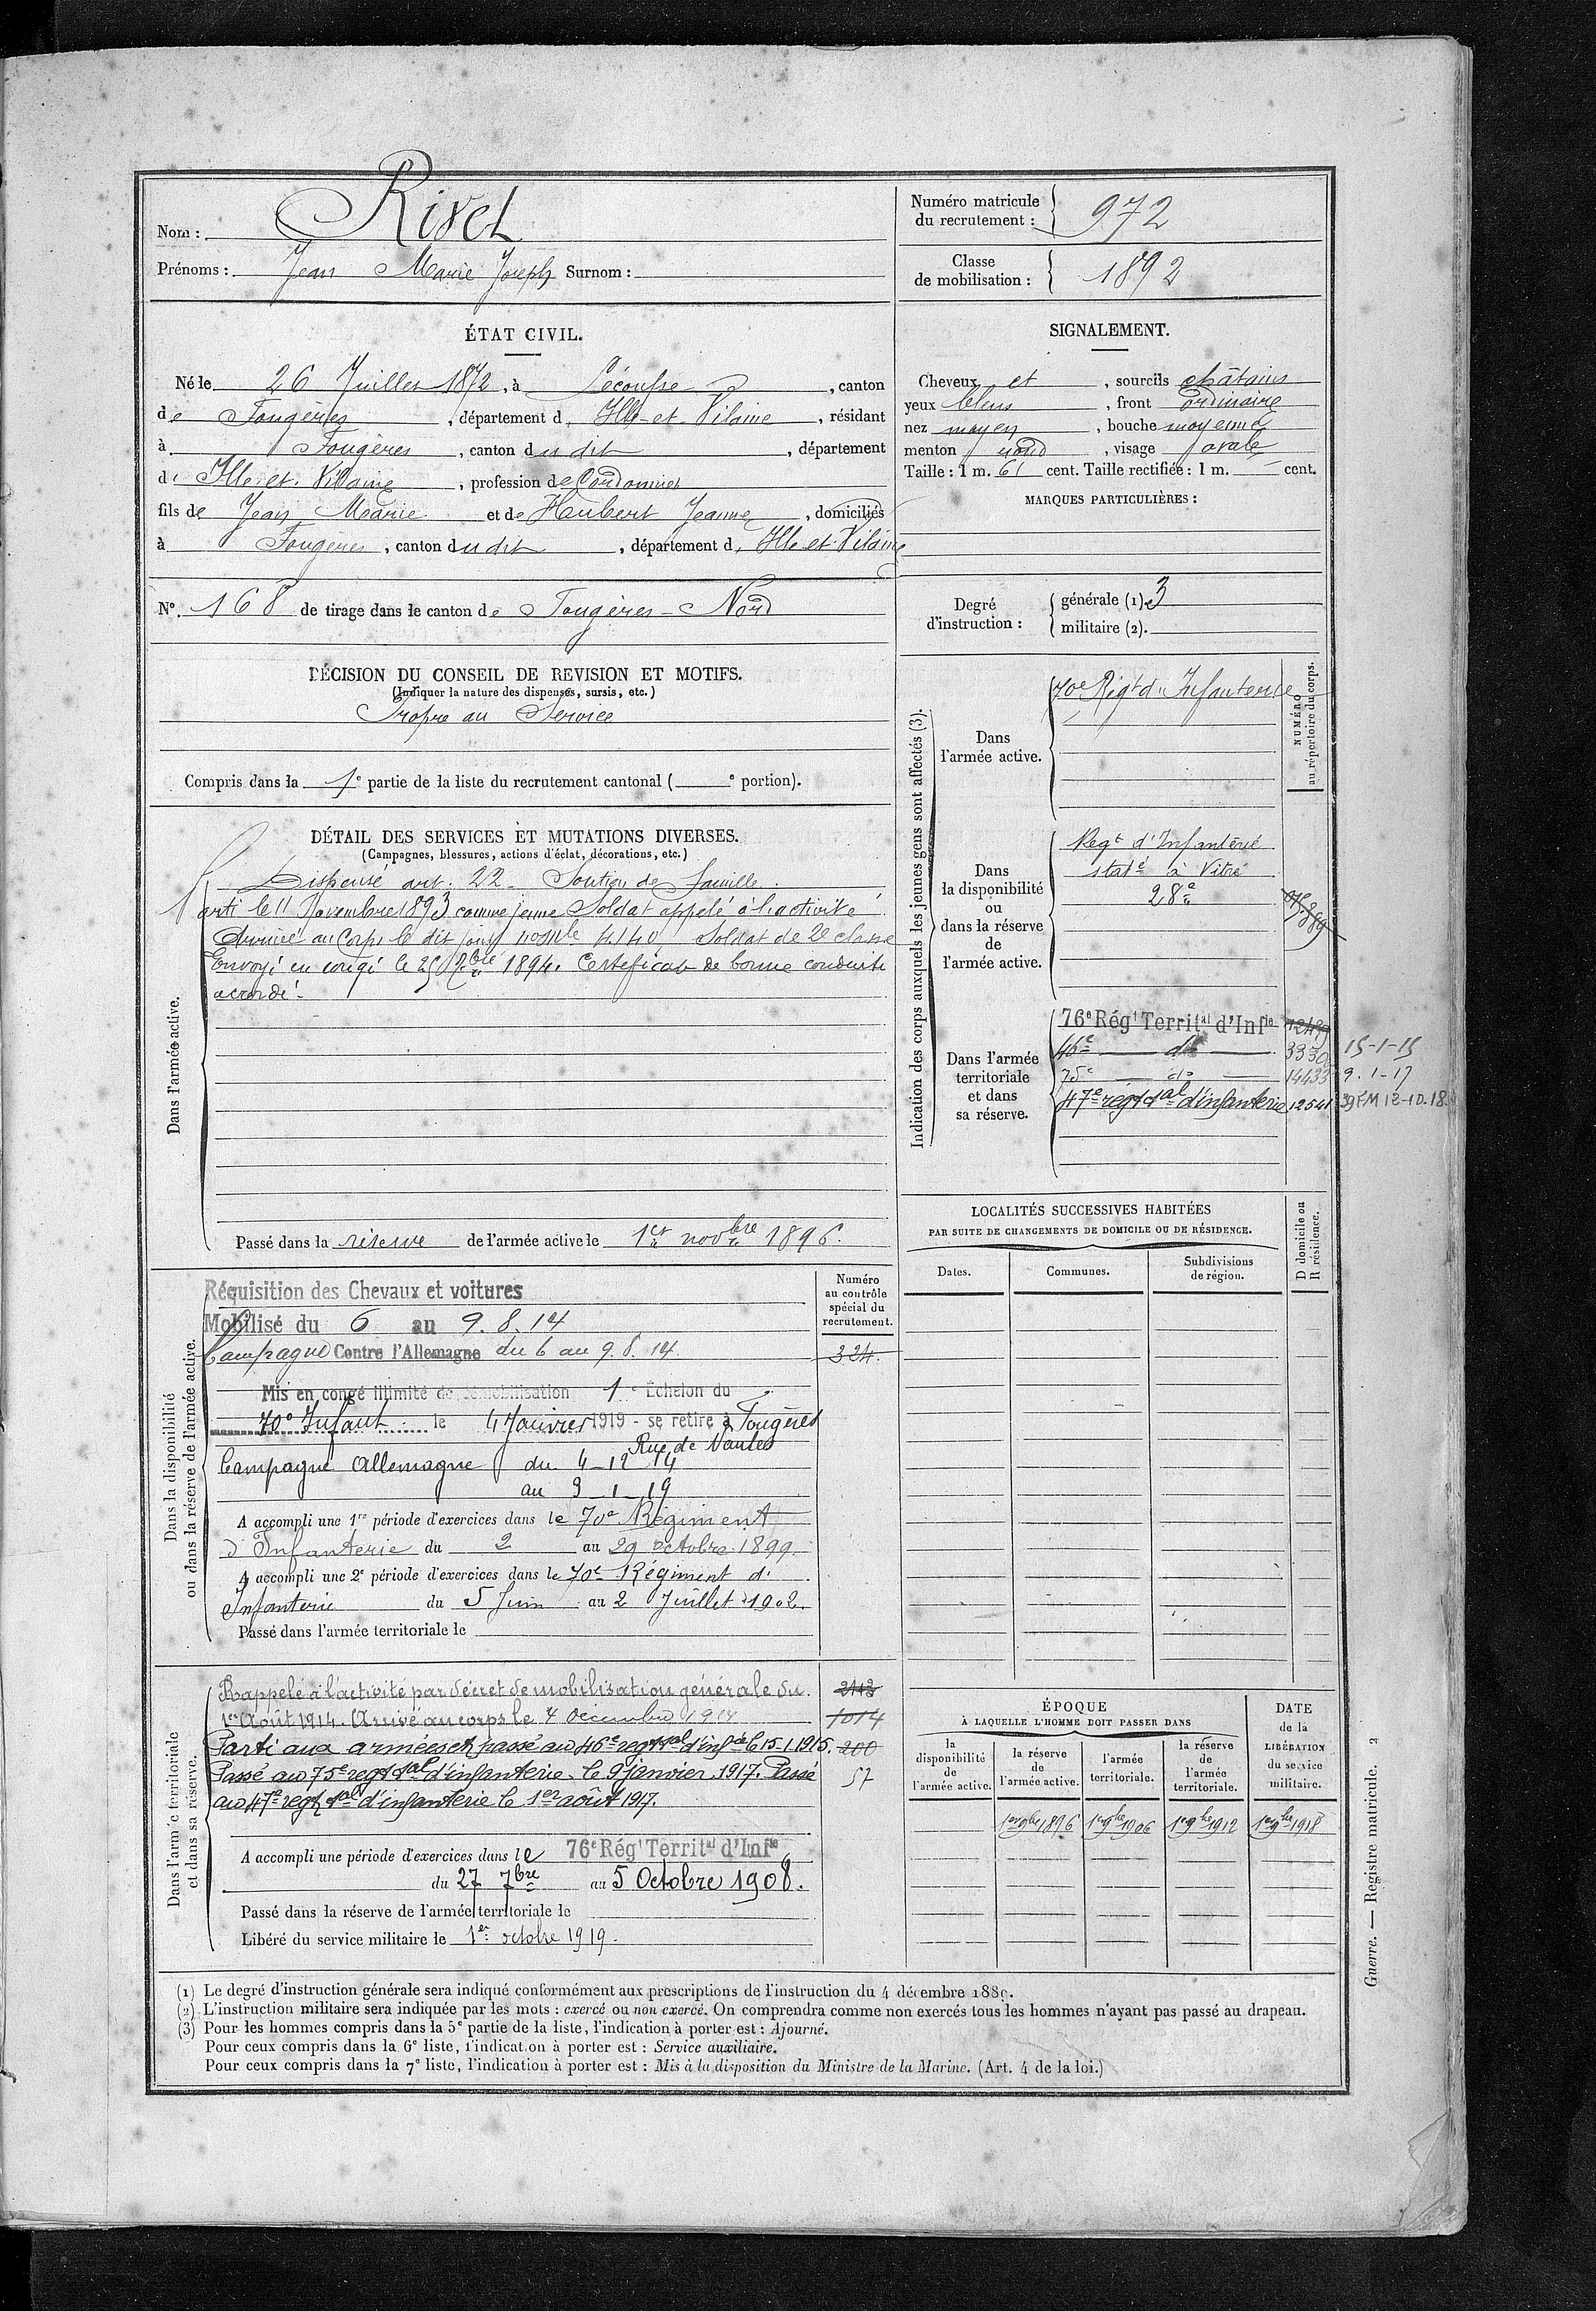 Nom : Rivet
Prénoms : Jean Marie Joseph Surnom :
Numéro matricule du recrutement : 972
Classe de mobilisation : 1892
ÉTAT CIVIL.
Né le 26 Juillet 1872, à Lécousse, canton
de Fougères, département d'Ille-et-Vilaine, résidant
à Fougères, canton dudit, département
d'Ille-et-Vilaine, profession de Cordonnier
fils de Jean Marie et de Haubert Jeanne, domiciliés
à Fougères, canton dudit, département d'Ille-et-Vilaine
N° 168 de tirage dans le canton de Fougères-Nord
SIGNALEMENT.
Cheveux et, sourcils châtains
yeux bleus, front ordinaire
nez moyen, bouche moyenne
menton rond, visage ovale
Taille : 1 m. 61 cent. Taille rectifiée : 1 m. — cent.
MARQUES PARTICULIÈRES :
Degré d'instruction : générale (1). 3
militaire (2).
DÉCISION DU CONSEIL DE REVISION ET MOTIFS.
(Indiquer la nature des dispenses, sursis, etc.)
Propre au Service
Compris dans la 1e partie de la liste du recrutement cantonal ( e portion).
DÉTAIL DES SERVICES ET MUTATIONS DIVERSES.
(Campagnes, blessures, actions d'éclat, décorations, etc.)
Dans l'armée active.
Dispensé art. 22 - Soutien de famille.
Parti le 11 Novembre 1893 comme jeune Soldat appelé à l'activité
Arrivé au Corps le dit jour no mle 4140 Soldat de 2e classe
Envoyé en congé le 25 7bre 1894. Certificat de bonne conduite
accordé.
Passé dans la réserve de l'armée active le 1er novbre 1896.
Indication des corps auxquels les jeunes gens sont affectés (3).
NUMÉRO au répertoire du corps.
Dans l'armée active.
70e Régt d'Infanterie
Dans la disponibilité ou dans la réserve de l'armée active.
Regt d'Infanterie
staté à Vitré
28e
Dans l'armée territoriale et dans sa réserve.
76e Régt Territal d'Infie
46e — do — 3330 15-1-15
75e — do — 14433 9.1-17
47e régt tal d'infanterie 12541
LOCALITÉS SUCCESSIVES HABITÉES
PAR SUITE DE CHANGEMENTS DE DOMICILE OU DE RÉSIDENCE.
Dates. Communes. Subdivisions de région. D domicile ou R résidence.
Dans la disponibilité ou dans la réserve de l'armée active.
Numéro au contrôle spécial du recrutement.
Réquisition des Chevaux et voitures
Mobilisé du 6 au 9.8.14
Campagne Contre l'Allemagne du 6 au 9.8.14. 324.
Mis en congé illimité de démobilisation 1e Echelon du
70e Infant. le 4 Janvier 1919 - se retire à Fougères
Rue de Nantes
Campagne Allemagne du 4-12-14
au 3-1-19
A accompli une 1re période d'exercices dans le 70e Régiment
d'Infanterie du 2 au 29 octobre 1899.
A accompli une 2e période d'exercices dans le 70e Régiment d'
Infanterie du 5 Juin au 2 Juillet 1902.
Passé dans l'armée territoriale le
Dans l'armée territoriale et dans sa réserve.
Rappelé à l'activité par décret de mobilisation générale du 2143
1er Août 1914. Arrivé au corps le 4 décembre 1914 1014
Parti aux armées et passé au 46e regt tal d'infie le 15.1.1915. 200
Passé au 75e regt tal d'infanterie le 9 janvier 1917. Passé 57
au 47e regt tal d'infanterie le 1er août 1917.
A accompli une période d'exercices dans le 76e Régt Territal d'Infie
du 27 7bre au 5 Octobre 1908.
Passé dans la réserve de l'armée territoriale le
Libéré du service militaire le 1er octobre 1919.
ÉPOQUE
À LAQUELLE L'HOMME DOIT PASSER DANS
la disponibilité de l'armée active. la réserve de l'armée active. l'armée territoriale. la réserve de l'armée territoriale.
DATE de la LIBÉRATION du service militaire.
1er 9bre 1896 1er 9bre 1906 1er 9bre 1912 1er 9bre 1918
(1) Le degré d'instruction générale sera indiqué conformément aux prescriptions de l'instruction du 4 décembre 1889.
(2) L'instruction militaire sera indiquée par les mots : exercé ou non exercé. On comprendra comme non exercés tous les hommes n'ayant pas passé au drapeau.
(3) Pour les hommes compris dans la 5e partie de la liste, l'indication à porter est : Ajourné.
Pour ceux compris dans la 6e liste, l'indication à porter est : Service auxiliaire.
Pour ceux compris dans la 7e liste, l'indication à porter est : Mis à la disposition du Ministre de la Marine. (Art. 4 de la loi.)
Guerre. — Registre matricule. 2